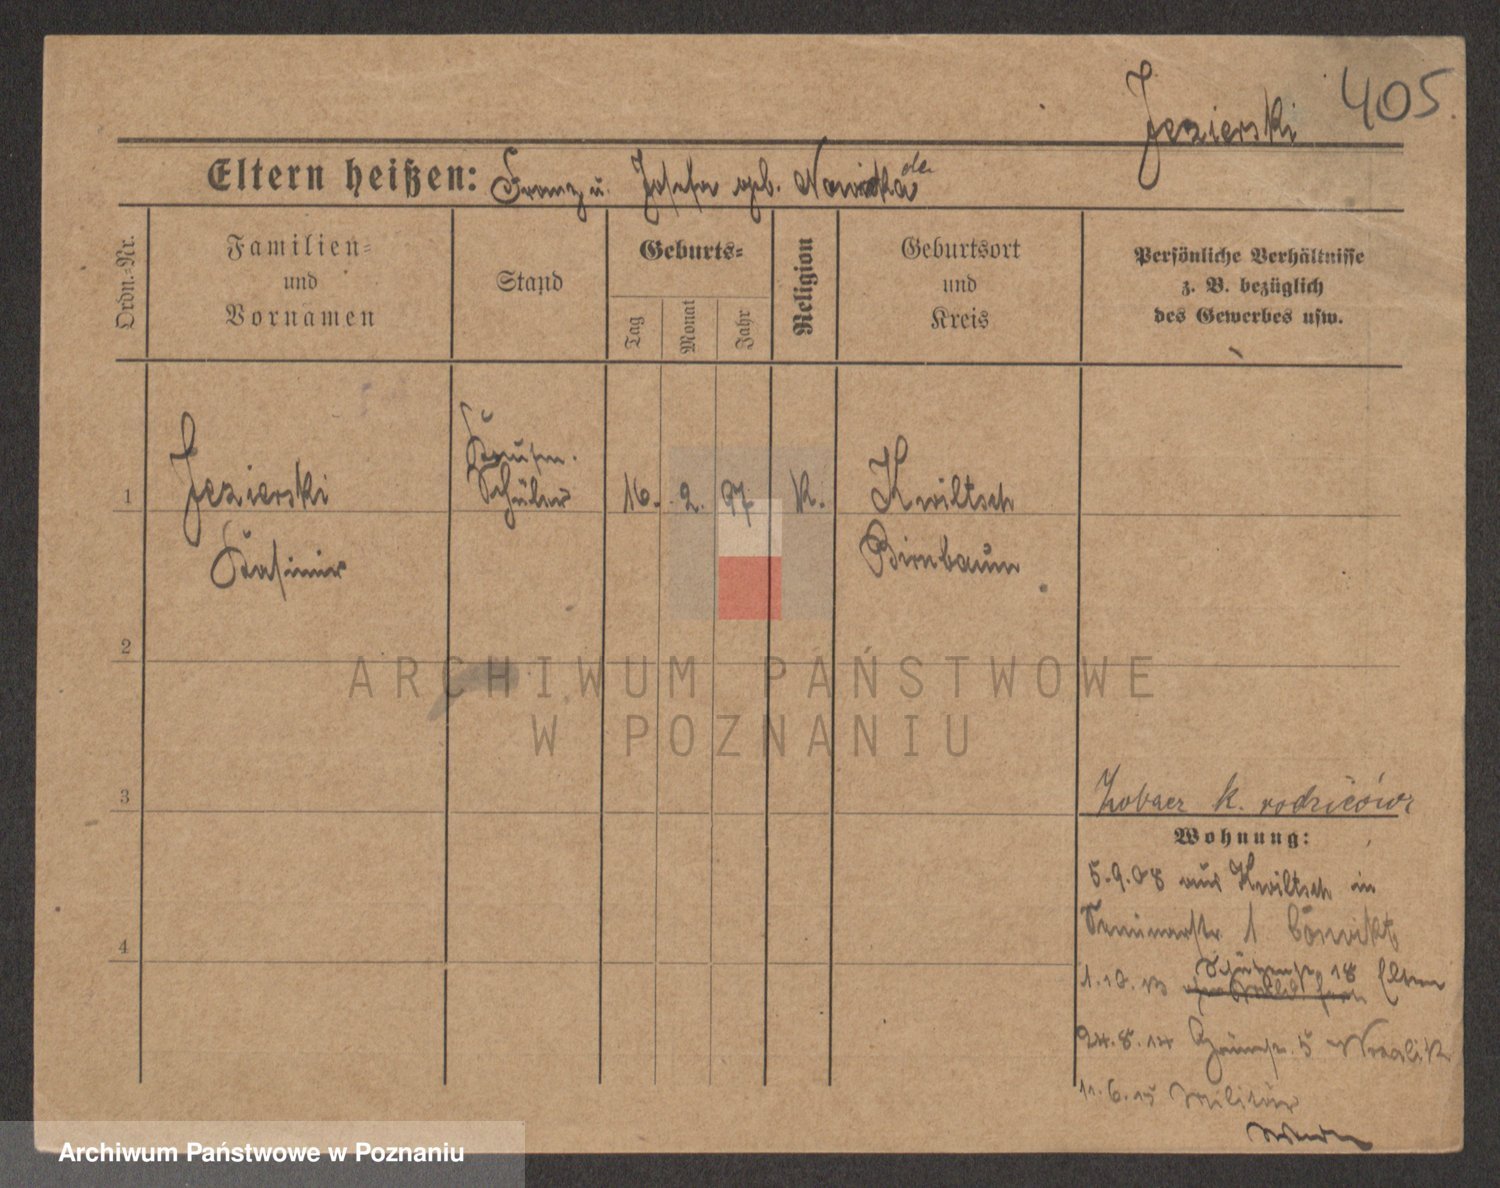 405
Jezierski
Eltern heißen: Franz u. Josefa geb. Nawrocka
Ordn.=Nr.
Familien=
und
Vornamen
Stand
Geburts=
Tag
Monat
Jahr
Religion
Geburtsort
und
Kreis
Persönliche Verhältnisse
z. B. bezüglich
des Gewerbes usw.
1
Jezierski
Kasimir
Schüler
16. 2. 97
K.
Kwiltsch
Birnbaum
2
3
4
Zobacz k. rodziców
Wohnung:
5.9.08 aus Kwiltsch in
Seminarstr 1
1.10. 13 Schützenstr 18 Eltern
24.8.14 5
11.6.15 Militär
ARCHIWUM PAŃSTWOWE
W POZNANIU
Archiwum Państwowe w Poznaniu